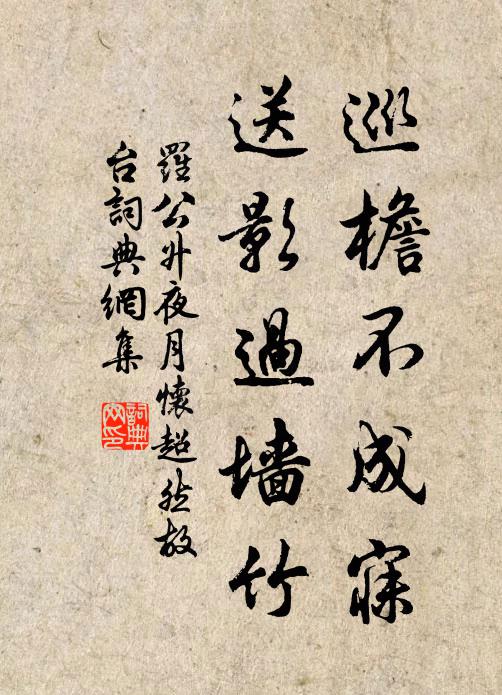 巡檐不成寐
送影過墙竹
羅公升夜月懷超然故
台詞典網集
詞典网印